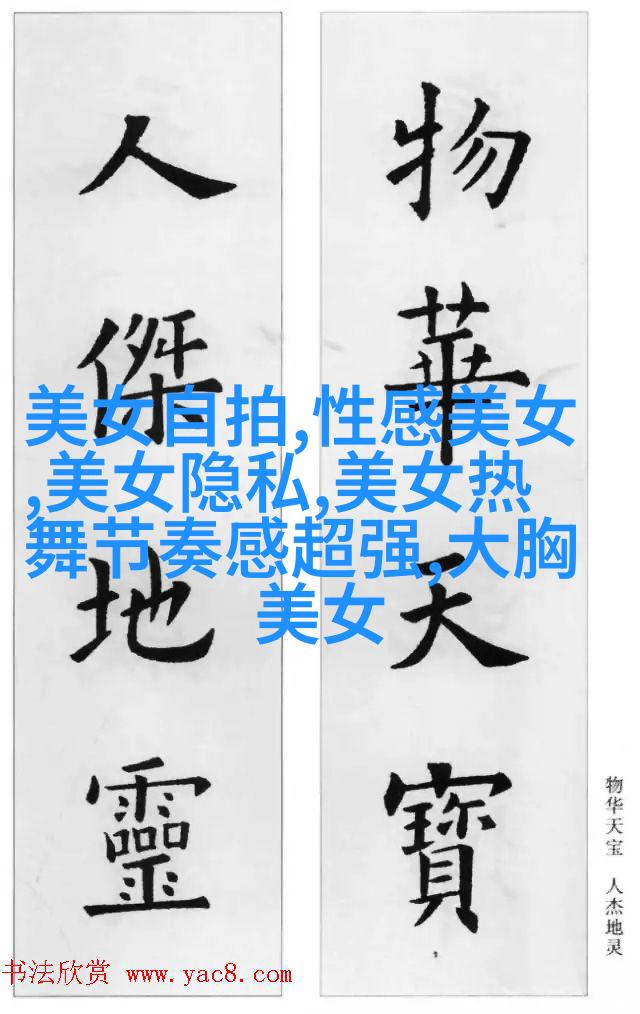 物華天寶
人傑地靈
美女自拍,性感美女
,美女隐私,美女热
舞节奏感超强,大胸
美女
物华天宝 人杰地灵
书法欣赏 www.yac8.com